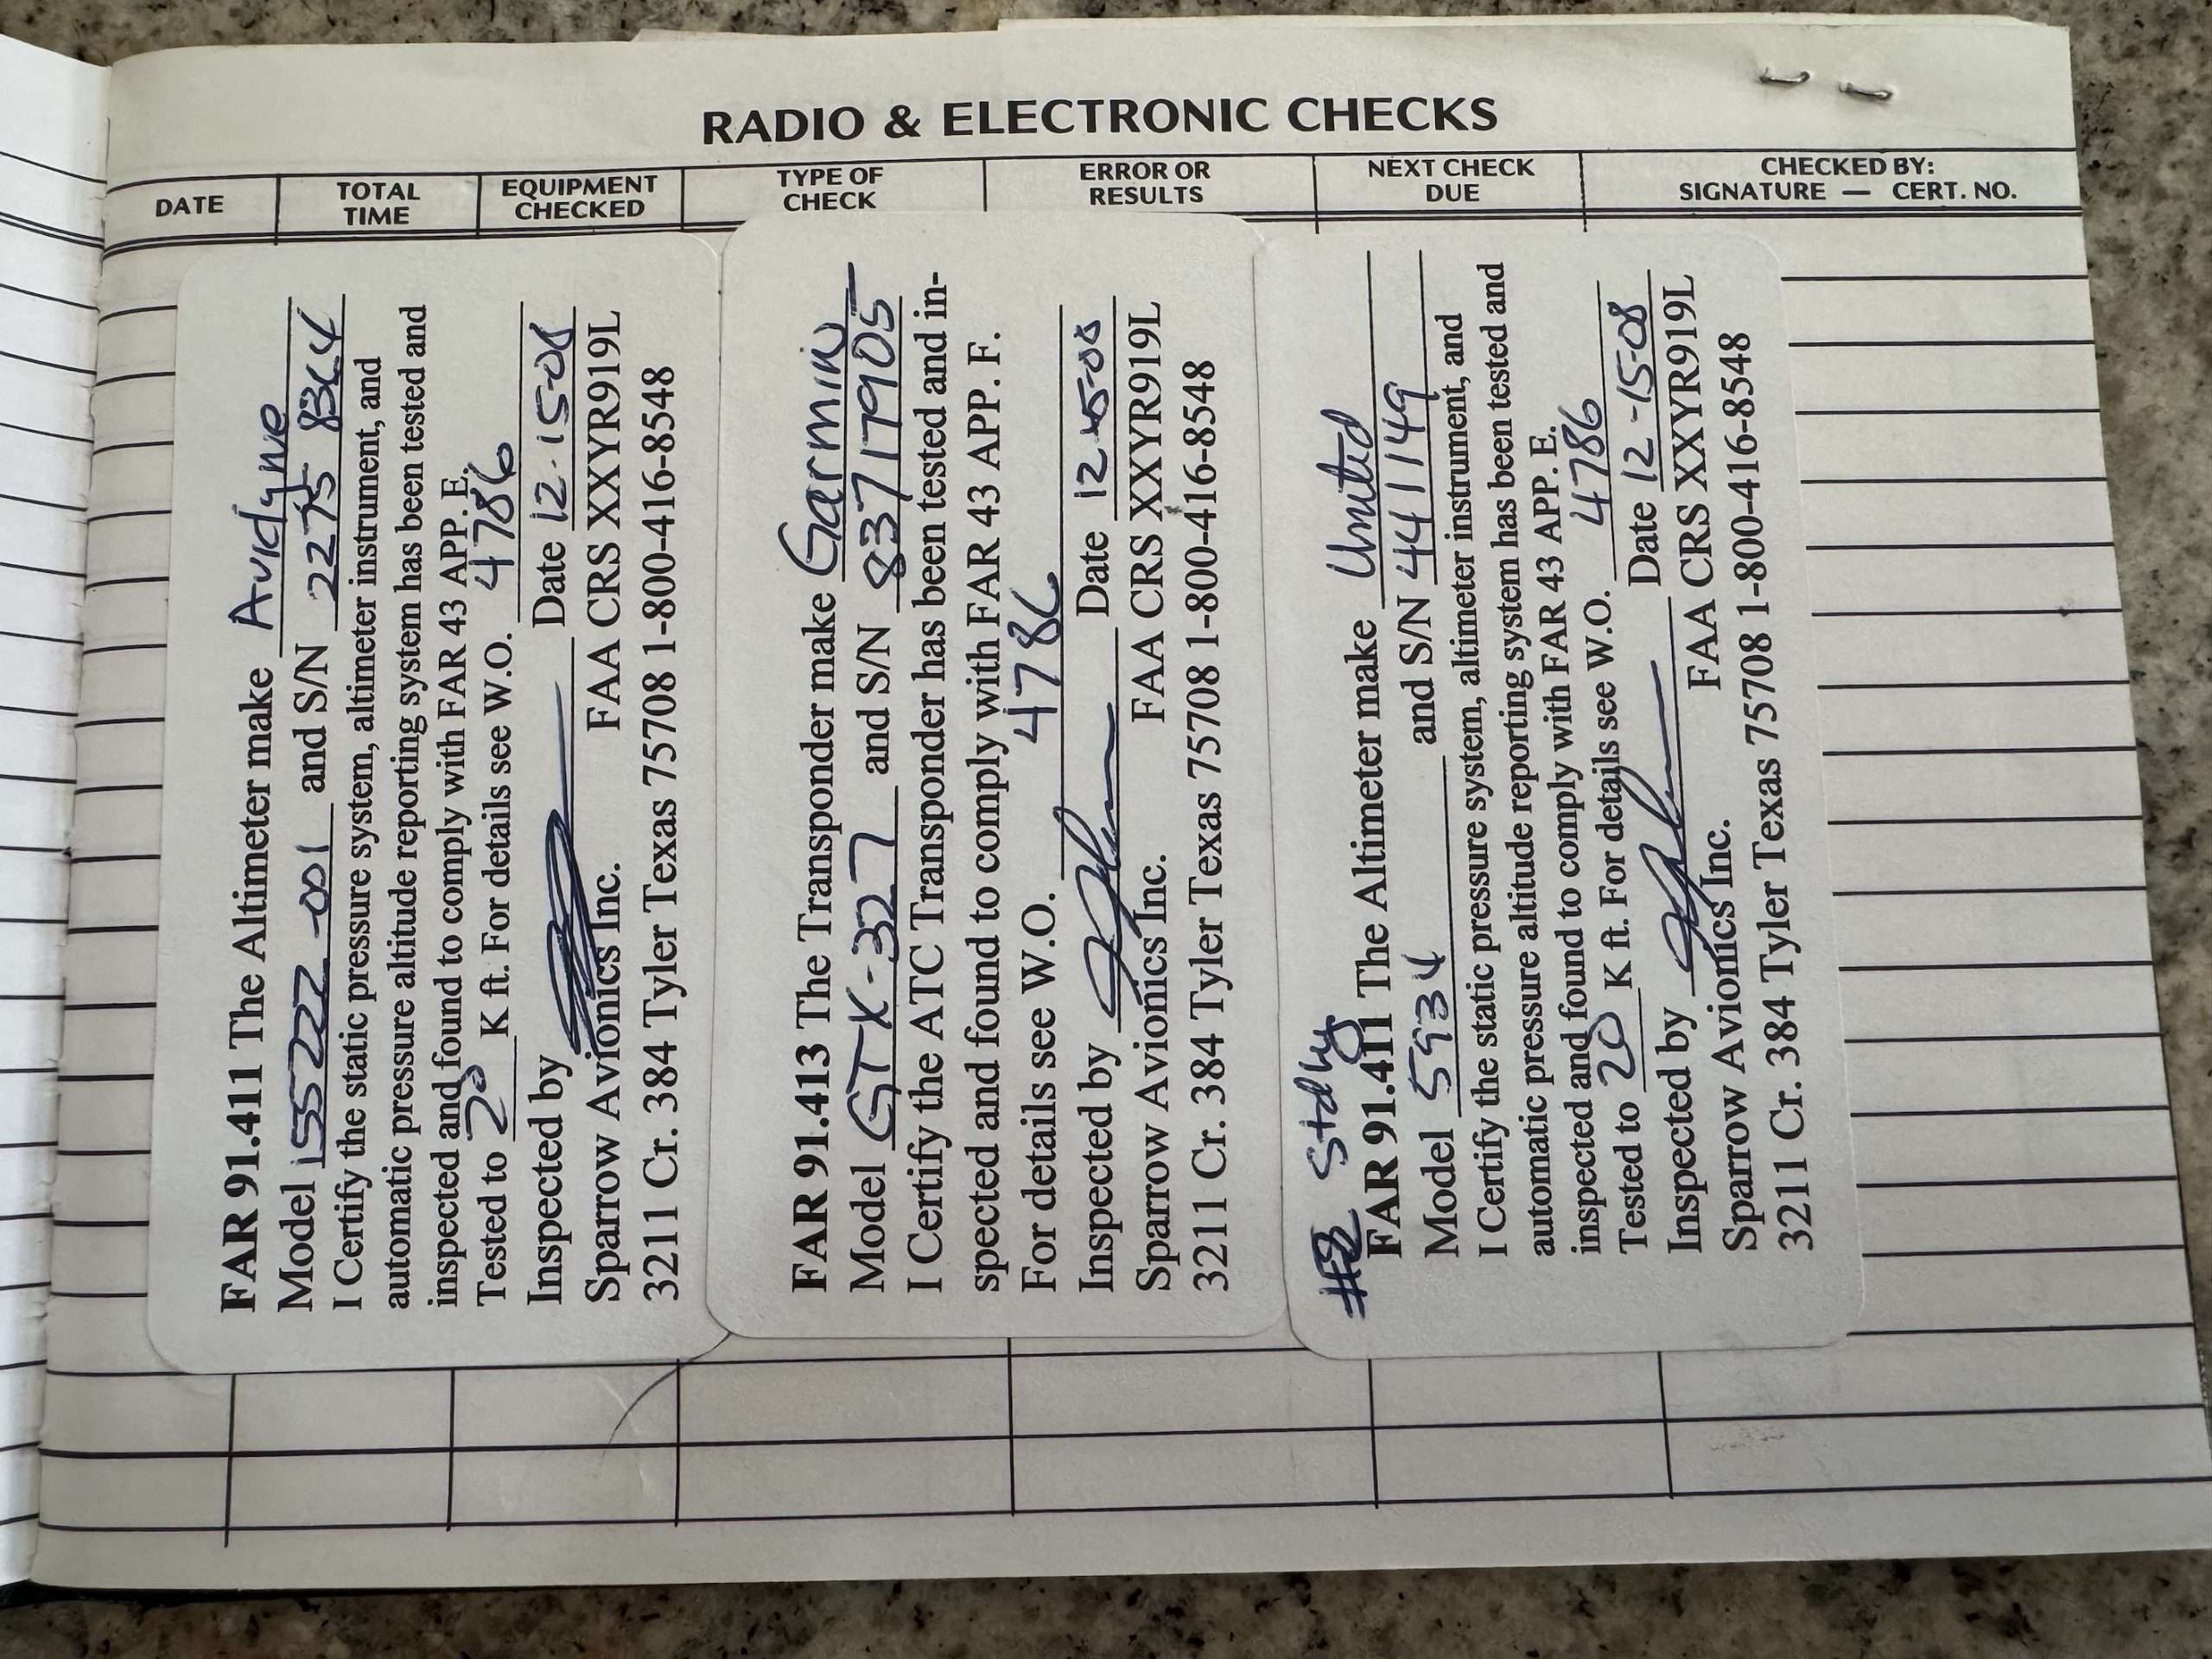 RADIO & ELECTRONIC CHECKS
DATE
TOTAL TIME
EQUIPMENT CHECKED
TYPE OF CHECK
ERROR OR RESULTS
NEXT CHECK DUE
CHECKED BY:
SIGNATURE — CERT. NO.
FAR 91.411 The Altimeter make Avidyne
Model 15522-001 and S/N 2275
I Certify the static pressure system, altimeter instrument, and
automatic pressure altitude reporting system has been tested and
inspected and found to comply with FAR 43 APP. E.
Tested to 20 K ft. For details see W.O. 4786
Inspected by Date 12-15-08
Sparrow Avionics Inc. FAA CRS XXYR919L
3211 Cr. 384 Tyler Texas 75708 1-800-416-8548
FAR 91.413 The Transponder make Garmin
Model GTX-327 and S/N 83717905
I Certify the ATC Transponder has been tested and in-
spected and found to comply with FAR 43 APP. F.
For details see W.O. 4786
Inspected by Date 12-15-08
Sparrow Avionics Inc. FAA CRS XXYR919L
3211 Cr. 384 Tyler Texas 75708 1-800-416-8548
#2 Stdby
FAR 91.411 The Altimeter make United
Model 5934 and S/N 441149
I Certify the static pressure system, altimeter instrument, and
automatic pressure altitude reporting system has been tested and
inspected and found to comply with FAR 43 APP. E.
Tested to 20 K ft. For details see W.O. 4786
Inspected by Date 12-15-08
Sparrow Avionics Inc. FAA CRS XXYR919L
3211 Cr. 384 Tyler Texas 75708 1-800-416-8548